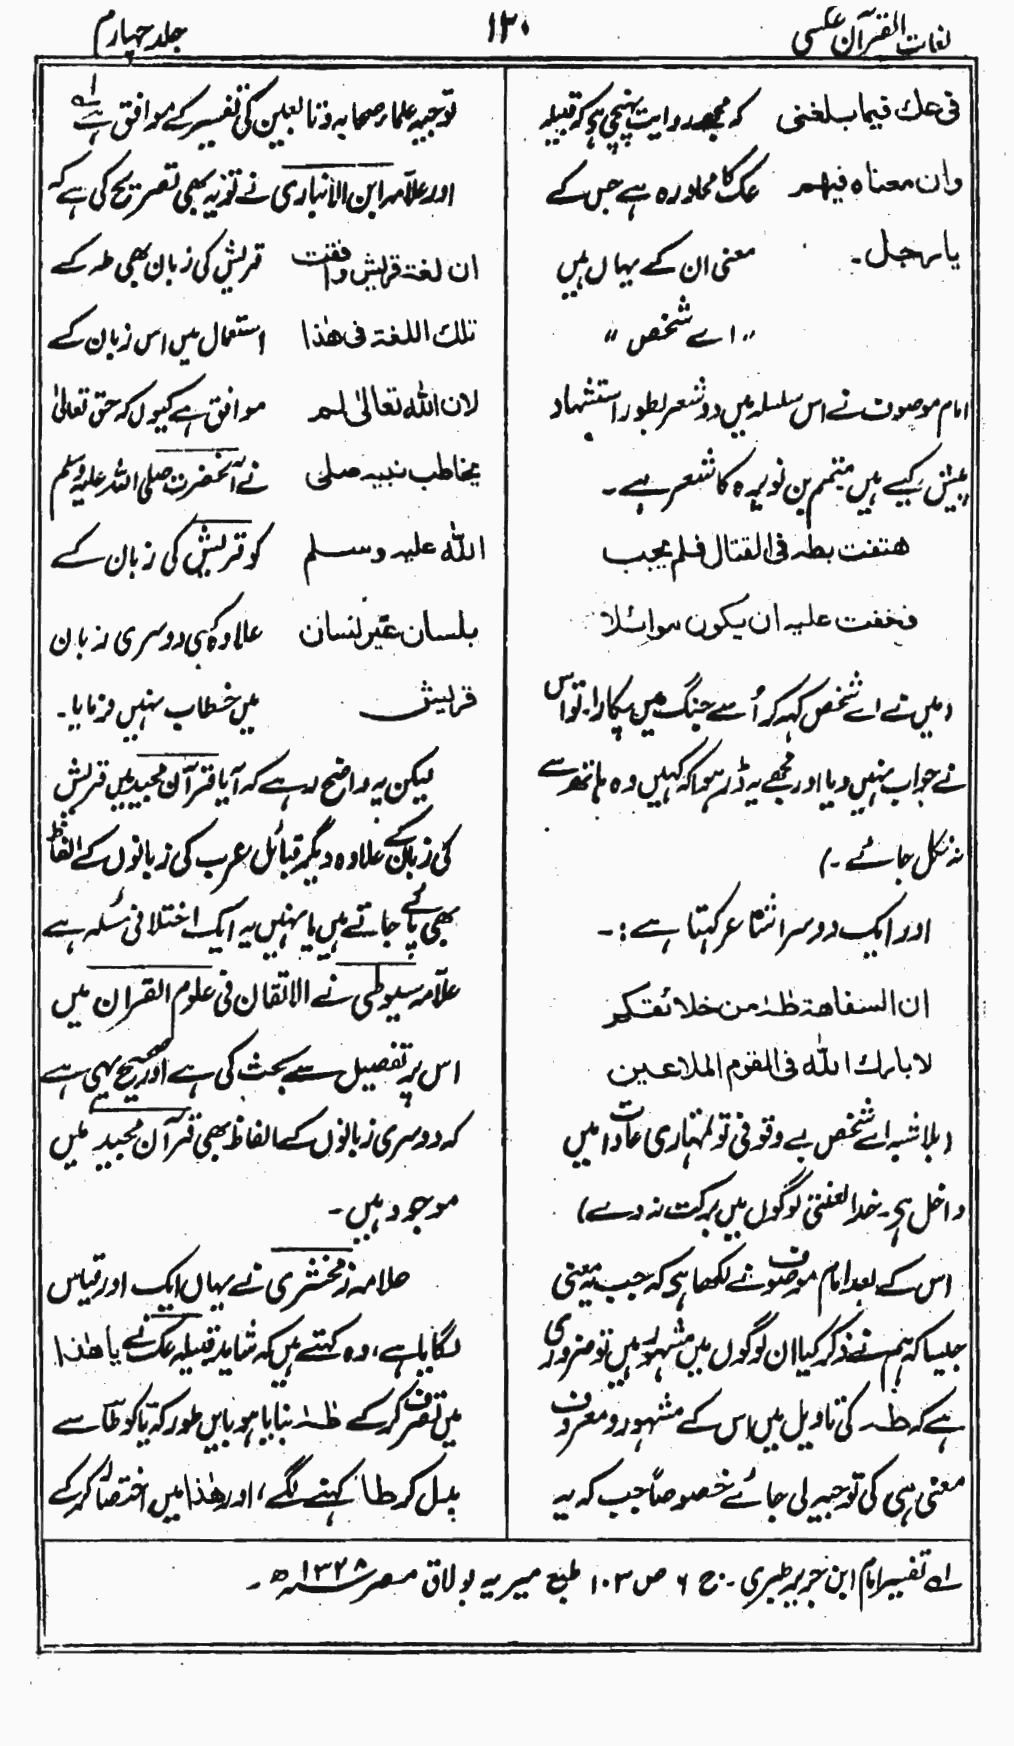 لغات القرآن عکسی
۱۳۰
جلد چہارم
فی عک فیما بلغنی کہ مجھے روایت پہنچی ہی کہ قبیلہ
وان معناہ فیھم عک کا محاورہ ہے جس کے
یا رجل۔ معنی ان کے یہاں ہیں
"اے شخص"
امام موصوف نے اس سلسلہ میں دو شعر بطور استشہاد
پیش کیے ہیں متمم بن نویرہ کا شعر ہے۔
ھتفت بطہ فی القتال فلم یجب
فخفت علیہ ان یکون موائلا
(میں نے اے شخص کہہ کر اُسے جنگ میں پکارا۔ تو اس
نے جواب نہیں دیا اور مجھے یہ ڈر ہوا کہ کہیں وہ ہاتھ سے
نہ نکل جائے۔)
اور ایک دوسرا شاعر کہتا ہے:۔
ان السفاھۃ طٰہٰ من خلائقکم
لا بارک اللہ فی القوم الملاعین
(بلا شبہ اے شخص بے وقوفی تو تمہاری عادات میں
داخل ہی۔ خدا لعنتی لوگوں میں برکت نہ دے)
اس کے بعد امام موصوف نے لکھا ہی کہ جب یہ معنی
جیسا کہ ہم نے ذکر کیا ان لوگوں میں مشہور ہیں تو ضروری
ہے کہ طٰہٰ کی تاویل میں اس کے مشہور و معروف
معنی ہی کی توجیہ لی جائے خصوصاً جب کہ یہ
توجیہ علماء صحابہ و تابعین کی تفسیر کے موافق ہے لہ
اور علامہ ابن الانباری نے تو یہ بھی تصریح کی ہے کہ
ان لغۃ قریش وافقت قریش کی زبان بھی طہ کے
تلک اللغۃ فی ھٰذا استعمال میں اس زبان کے
لان اللہ تعالیٰ لم موافق ہے کیوں کہ حق تعالیٰ
یخاطب نبیہ صلی نے آنحضرت صلی اللہ علیہ وسلم
اللہ علیہ وسلم کو قریش کی زبان کے
بلسان غیر لسان علاوہ کسی دوسری زبان
قریش میں خطاب نہیں فرمایا۔
لیکن یہ واضح رہے کہ آیا قرآن مجید میں قریش
کی زبان کے علاوہ دیگر قبائل عرب کی زبانوں کے الفاظ
بھی پائے جاتے ہیں یا نہیں یہ ایک اختلافی مسئلہ ہے
علامہ سیوطی نے الاتقان فی علوم القران میں
اس پر تفصیل سے بحث کی ہے اور صحیح یہی ہے
کہ دوسری زبانوں کے الفاظ بھی قرآن مجید میں
موجود ہیں۔
علامہ زمخشری نے یہاں ایک اور قیاس
لگایا ہے، وہ کہتے ہیں کہ شاید قبیلہ عک نے یا ھٰذا
میں تصرف کر کے طٰہٰ بنایا ہو بایں طور کہ یا کو طا سے
بدل کر طا کہنے لگے، اور ھٰذا میں اختصار کر کے
لہ تفسیر امام ابن جریر طبری۔ ج ۶ ص ۱۰۳ طبع میریہ بولاق مصر ۱۳۲۸ھ۔